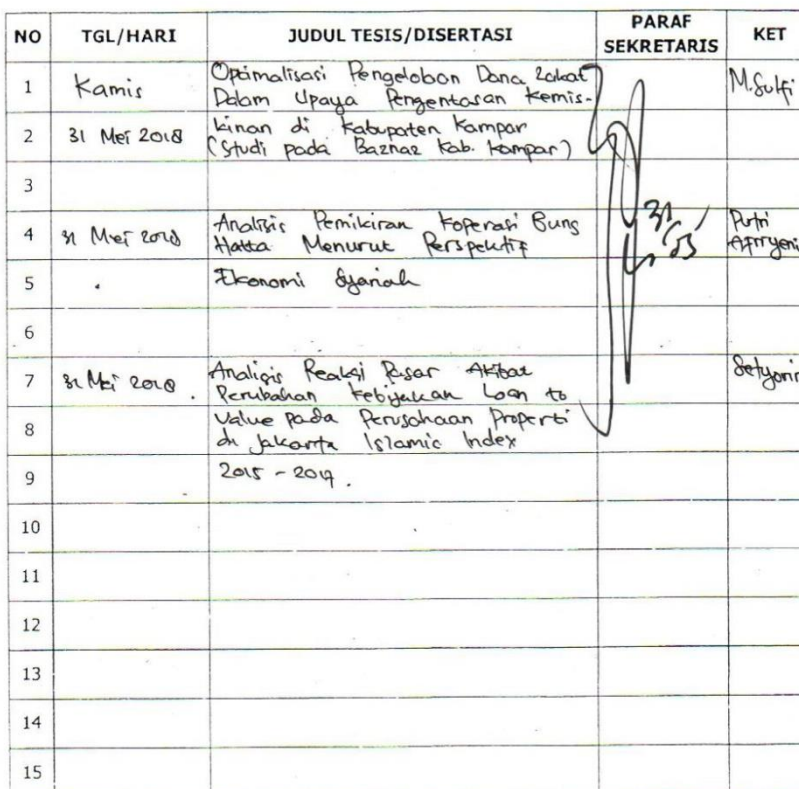 NO TGL/HARI JUDUL TESIS/DISERTASI PARAF SEKRETARIS KET
1 Kamis Optimalisasi Pengelolaan Dana Zakat M. Sulfi
Dalam Upaya Pengentasan Kemis-
2 31 Mei 2018 kinan di Kabupaten Kampar
(Studi pada Baznaz Kab. Kampar)
3
4 31 Mei 2018 Analisis Pemikiran Koperasi Bung Putri
Hatta Menurut Perspektif 31/05 Afriyeni
5 Ekonomi Syariah
6
7 31 Mei 2018. Analisis Reaksi Pasar Akibat
Perubahan Kebijakan Loan to
8 Value pada Perusahaan Properti
di Jakarta Islamic Index
9 2015 - 2017.
10
11
12
13
14
15